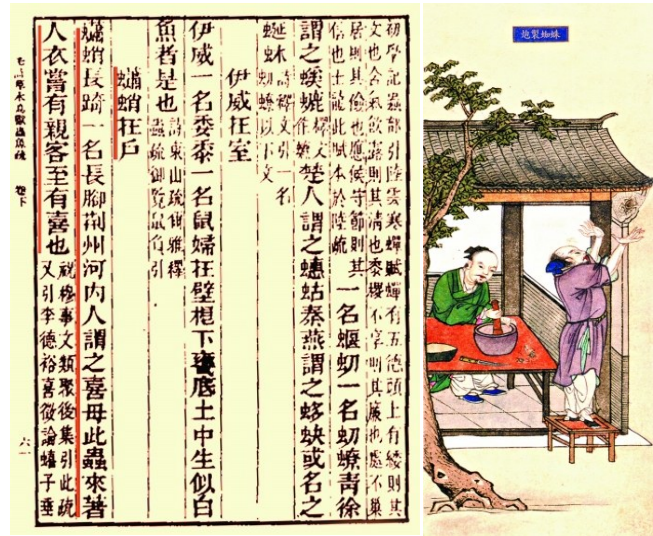 初學記蟲部引陸雲寒蟬賦蟬有五德頭上有緌則其
文也含氣飲露則其清也黍稷不享則其廉也處不巢
居則其儉也應候守節則其
信也士龍此賦本於陸疏
一名蝘虭一名虭蟟青徐
謂之螇螰
楚人謂之蟪蛄秦燕謂之蛥蚗或名之
蜓蚞
詩釋文引一名
虭蟟以下文
伊威在室
伊威一名委黍一名鼠婦在壁根下甕底土中生似白
魚者是也
詩東山疏爾雅釋
蟲疏御覽鼠負引
蠨蛸在戶
蠨蛸長踦一名長腳荊州河內人謂之喜母此蟲來著
人衣當有親客至有喜也
祝穆事文類聚後集引此疏
又引李德裕喜徵論蟢子垂
毛詩草木鳥獸蟲魚疏 卷下
六一
炮製蜘蛛